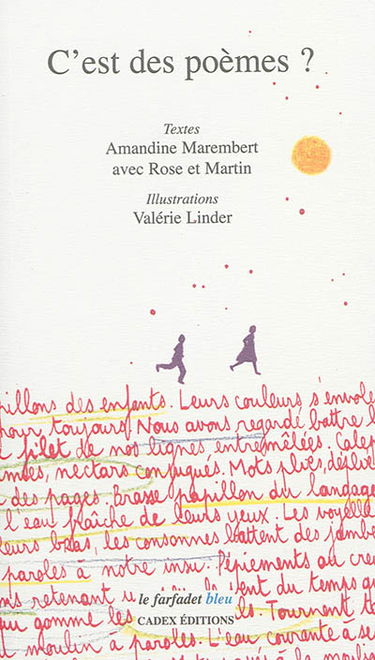 C'est des poèmes ?
Textes
Amandine Marembert
avec Rose et Martin
Illustrations
Valérie Linder
pillons des enfants. Leurs couleurs s'envole
pour toujours. Nous avons regardé battre l
filet de nos lignes entremêlées.
nectars conjugués. Mots pliés,
des pages. Brasse papillon du langage
l'eau fraîche de leurs yeux. Les voyelle
leurs bras, les consonnes battent des jambe
paroles à notre insu. Pépiements au cre
retenant du temps au
qui gomme les ls. Tournent
moulin à paroles. L'eau courante a se
le farfadet bleu
CADEX ÉDITIONS